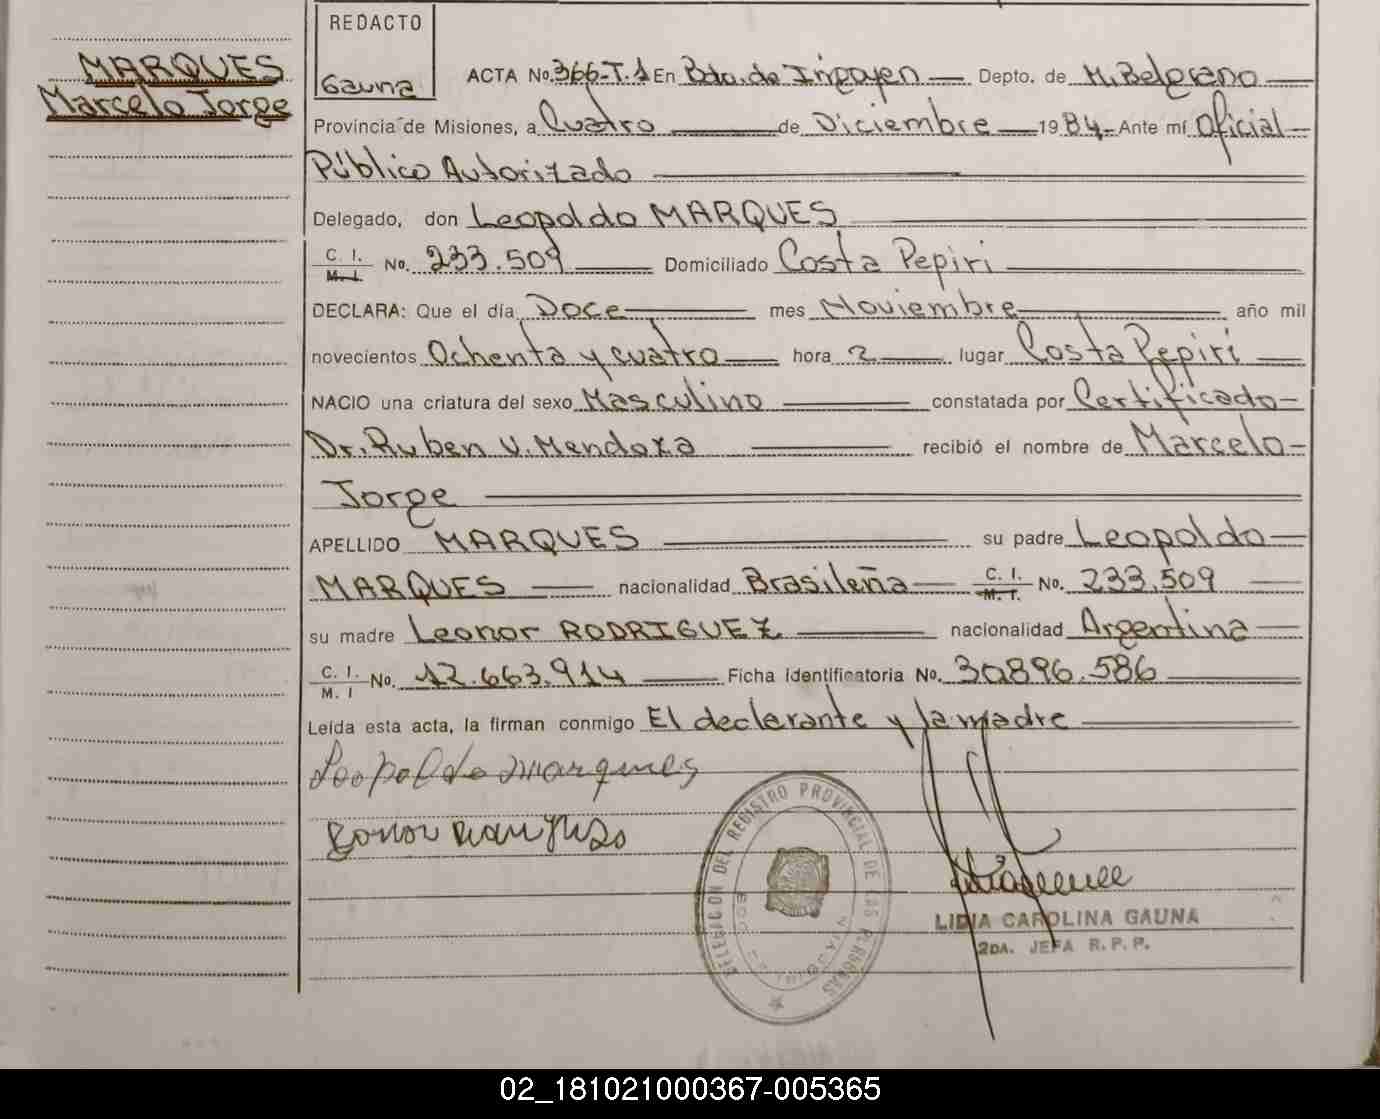 MARQUES
Marcelo Jorge
REDACTO
Gauna
ACTA No. 366-T.1 En Bdo. de Irigoyen Depto. de M. Belgrano
Provincia de Misiones, a Cuatro de Diciembre 1984 Ante mí Oficial
Público Autorizado
Delegado, don Leopoldo MARQUES
C. I. M. I. No. 233.509 Domiciliado Costa Pepiri
DECLARA: Que el día Doce mes Noviembre año mil
novecientos Ochenta y cuatro hora 2 lugar Costa Pepiri
NACIO una criatura del sexo Masculino constatada por Certificado
Dr. Ruben V. Mendoza recibió el nombre de Marcelo
Jorge
APELLIDO MARQUES su padre Leopoldo
MARQUES nacionalidad Brasileña C. I. M. I. No. 233.509
su madre Leonor RODRIGUEZ nacionalidad Argentina
C. I. M. I No. 12.663.914 Ficha identificatoria No. 30896.586
Leída esta acta, la firman conmigo El declarante y la madre
Leopoldo marques
DELEGACION DEL REGISTRO PROVINCIAL DE LAS PERSONAS
LIDIA CAROLINA GAUNA
2DA. JEFA R. P. P.
02_181021000367-005365